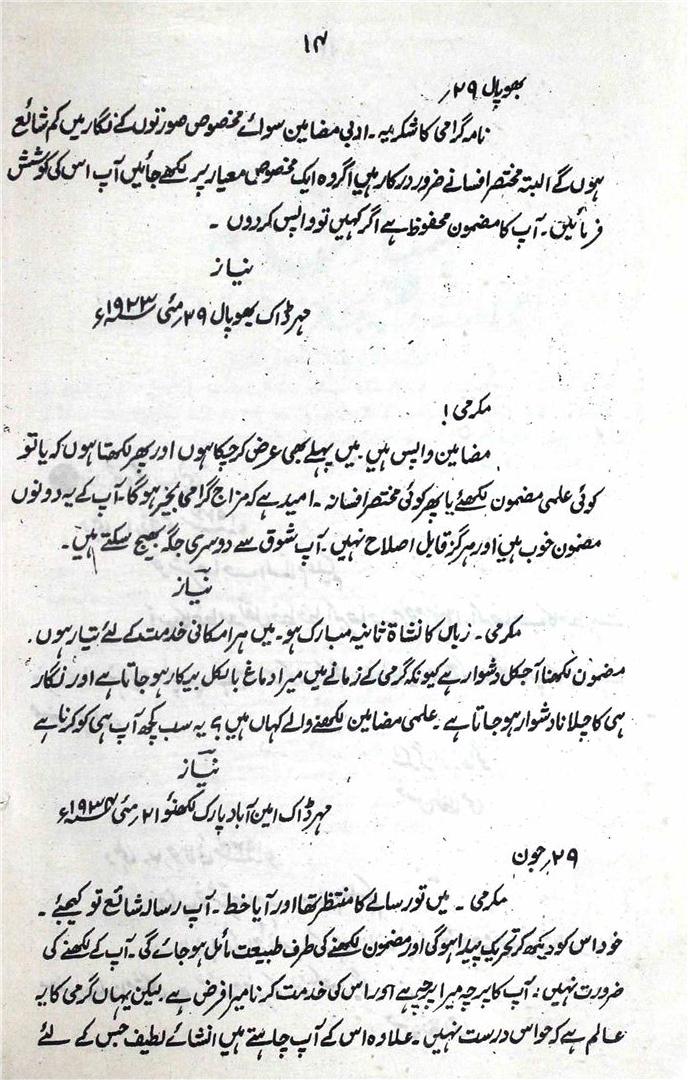 ۱۴
بھوپال ۲۹؍
نامہ گرامی کا شکریہ۔ ادبی مضامین سوائے مخصوص صورتوں کے نگار میں کم شائع
ہوں گے البتہ مختصر افسانے ضرور درکار ہیں اگر وہ ایک مخصوص معیار پر لکھے جائیں آپ اس کی کوشش
فرمائیں۔ آپ کا مضمون محفوظ ہے اگر کہیں تو واپس کر دوں ۔
نیاز
مہر ڈاک بھوپال ۲۹؍ مئی ۱۹۲۳ء
مکرمی !
مضامین واپس ہیں۔ میں پہلے بھی عرض کر چکا ہوں اور پھر لکھتا ہوں کہ یا تو
کوئی علمی مضمون لکھئے یا پھر کوئی مختصر افسانہ ۔ امید ہے کہ مزاج گرامی بخیر ہوگا۔ آپ کے یہ دونوں
مضمون خوب ہیں اور ہرگز قابل اصلاح نہیں۔ آپ شوق سے دوسری جگہ بھیج سکتے ہیں۔
نیاز
مکرمی ۔ زبان کا نشاۃ ثانیہ مبارک ہو۔ میں ہر امکانی خدمت کے لئے تیار ہوں۔
مضمون لکھنا آجکل دشوار ہے کیونکہ گرمی کے زمانے میں میرا دماغ بالکل بیکار ہو جاتا ہے اور نگار
ہی کا چلانا دشوار ہو جاتا ہے۔ علمی مضامین لکھنے والے کہاں ہیں؟ یہ سب کچھ آپ ہی کو کرنا ہے
نیاز
مہر ڈاک امین آباد پارک لکھنؤ ۲۱؍ مئی ۱۹۳۴ء
۲۹؍ جون
مکرمی ۔ میں تو رسالے کا منتظر تھا اور آیا خط ۔ آپ رسالہ شائع تو کیجئے ۔
خود اس کو دیکھ کر تحریک پیدا ہوگی اور مضمون لکھنے کی طرف طبیعت مائل ہو جائے گی۔ آپ کے لکھنے کی
ضرورت نہیں۔ آپ کا پرچہ میرا پرچہ ہے اور اس کی خدمت کرنا میرا فرض ہے لیکن یہاں گرمی کا یہ
عالم ہے کہ حواس درست نہیں۔ علاوہ اس کے آپ چاہتے ہیں انشائے لطیف جس کے لئے